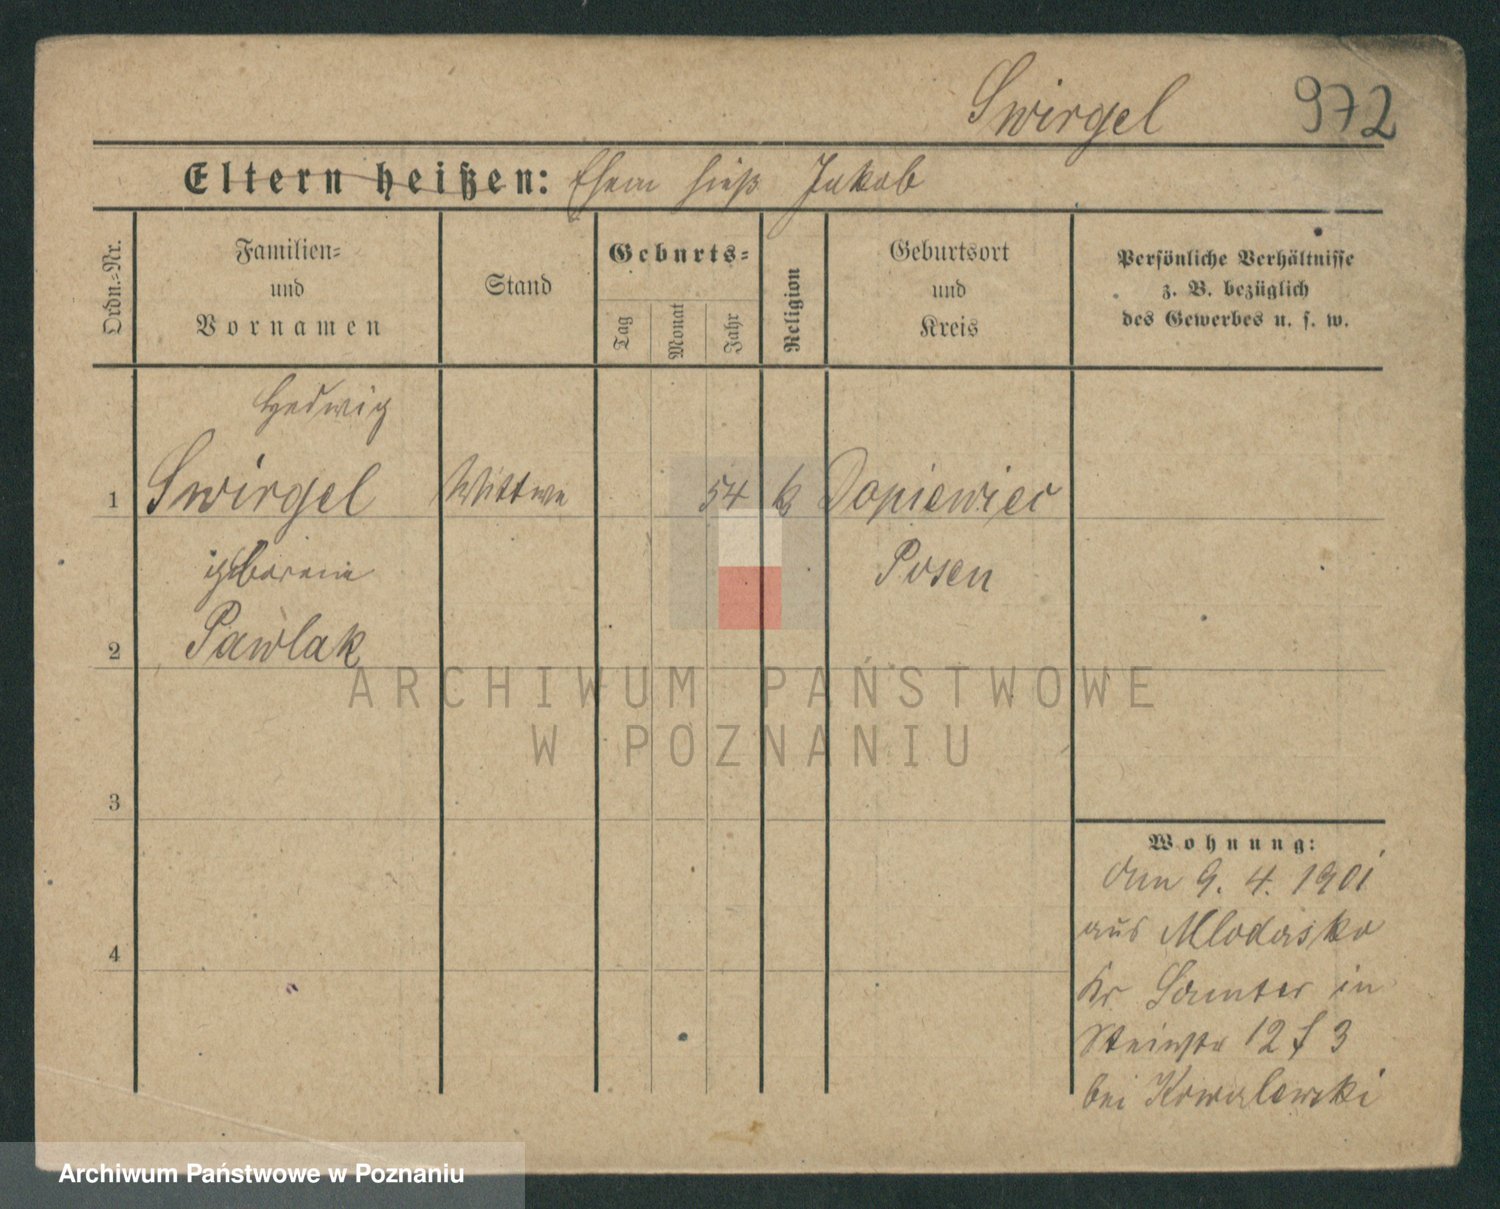 Swirgel 972
Eltern heißen: Ehem hieß Jakob
Ordn.-Nr.
Familien-
und
Vornamen
Stand
Geburts-
Tag
Monat
Jahr
Religion
Geburtsort
und
Kreis
Persönliche Verhältnisse
z. B. bezüglich
des Gewerbes u. s. w.
Hedwig
1 Swirgel Wittwe 54 k Dopiewiec
geborene Posen
2 Pawlak
3
4
Wohnung:
Am 9. 4. 1901
aus Mlodasko
Kr Samter in
Steinstr 12 f 3
bei Kowalewski
ARCHIWUM PAŃSTWOWE
W POZNANIU
Archiwum Państwowe w Poznaniu